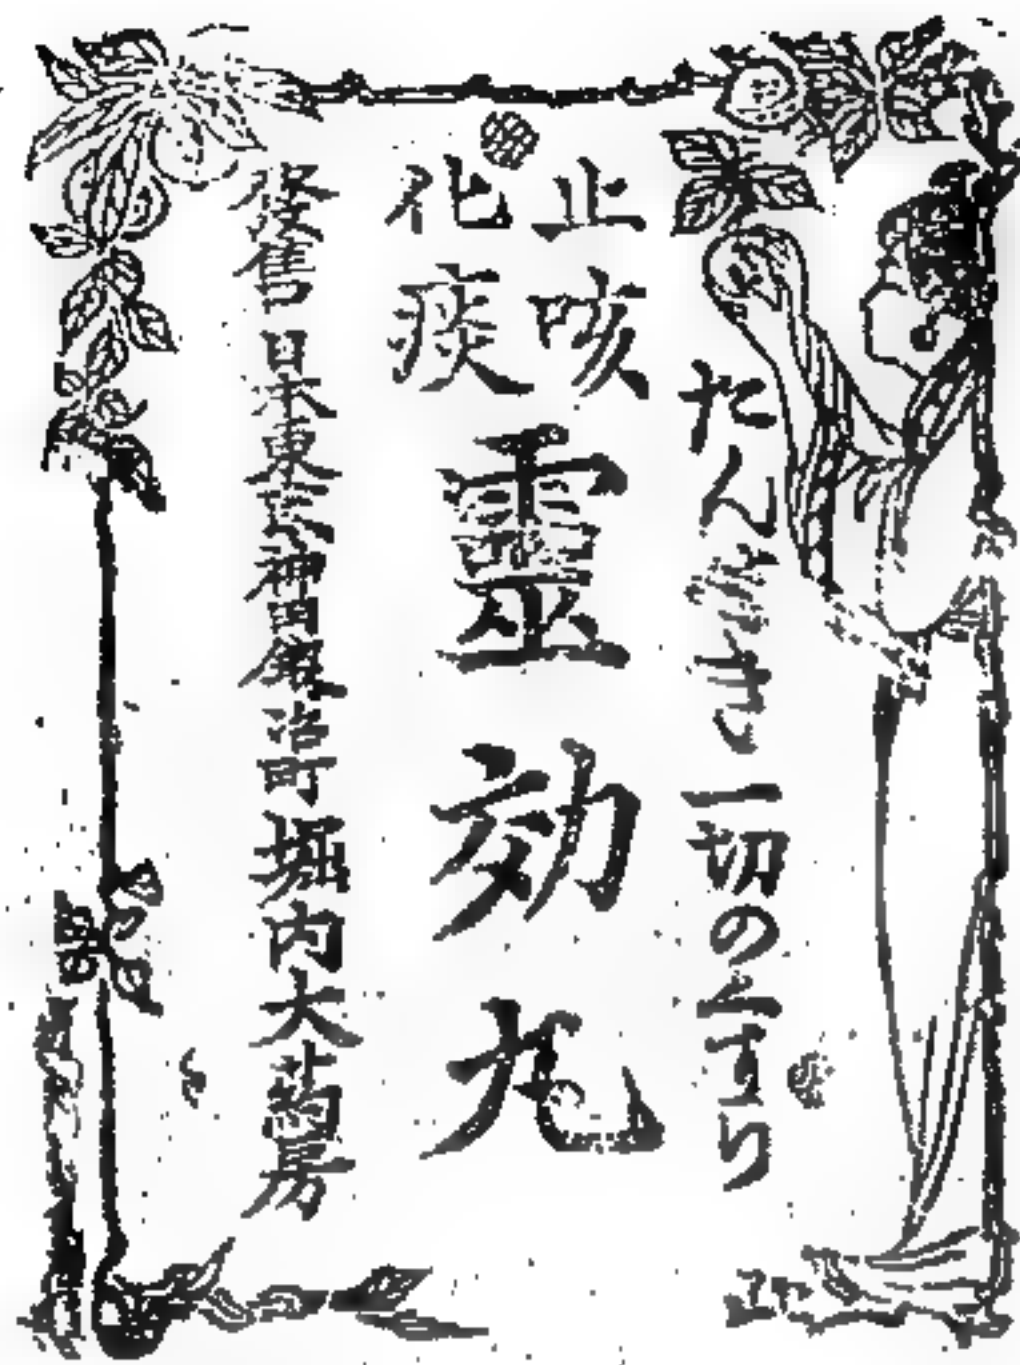 たんせき一切の妙薬
止咳
化痰
靈効丸
發售日本東京神田鍛冶町堀内大藥房